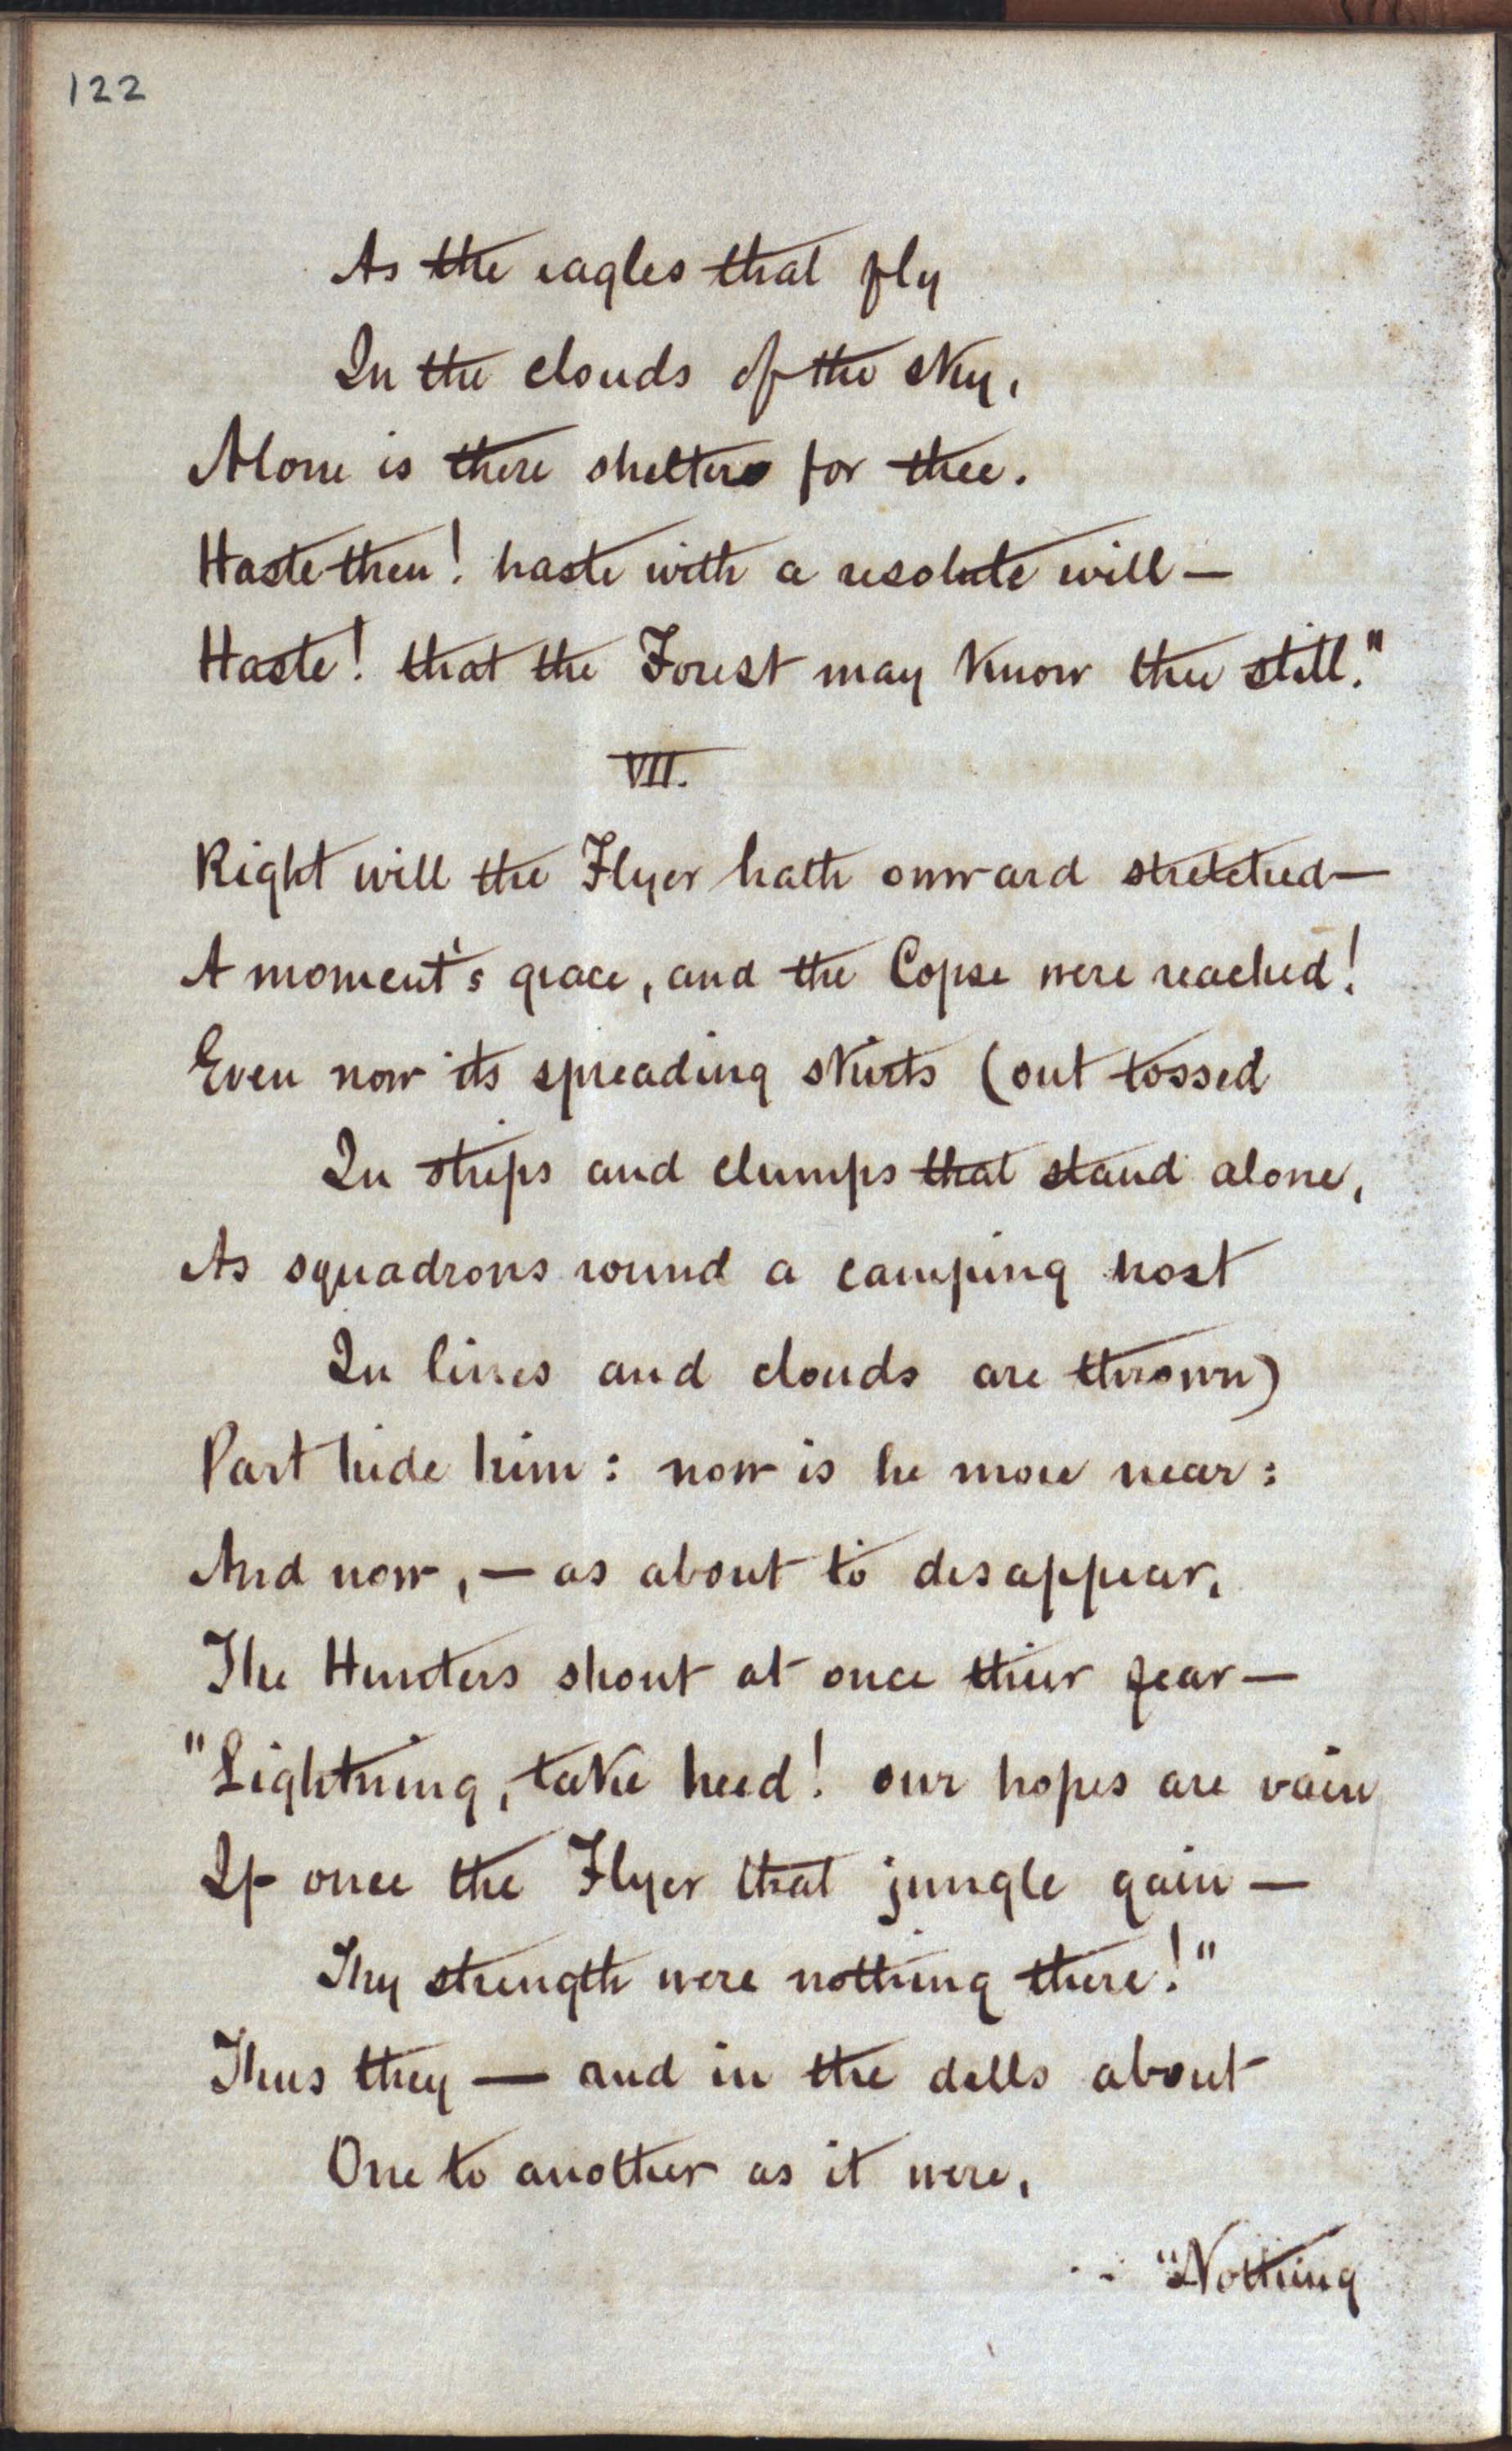 122
As the eagles that fly
In the clouds of the sky,
Alone is there shelter for thee.
Haste then! haste with a resolute will—
Haste! that the Forest may know thee still."
VII.
Right will the Flyer hath onward stretched—
A moment's grace, and the Copse were reached!
Even now its spreading skirts (out tossed
In strips and clumps that stand alone,
As squadrons round a camping host
In lines and clouds are thrown)
Part hide him: now is he more near:
And now, — as about to disappear,
The Hunters shout at once their fear—
"Lightning, take heed! our hopes are vain
If once the Flyer that jungle gain—
Thy strength were nothing there!"
Thus they — and in the dells about
One to another as it were,
"Nothing